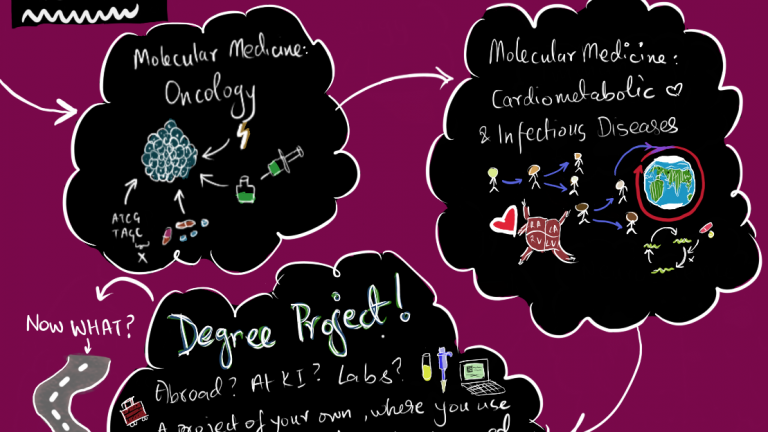 Molecular Medicine:
Oncology
ATCG
TAGC
X
Molecular Medicine:
Cardiometabolic
& Infectious Diseases
RA LA
RV LV
Now WHAT?
Degree Project!
Abroad? At KI? Labs?
A project of your own, where you use